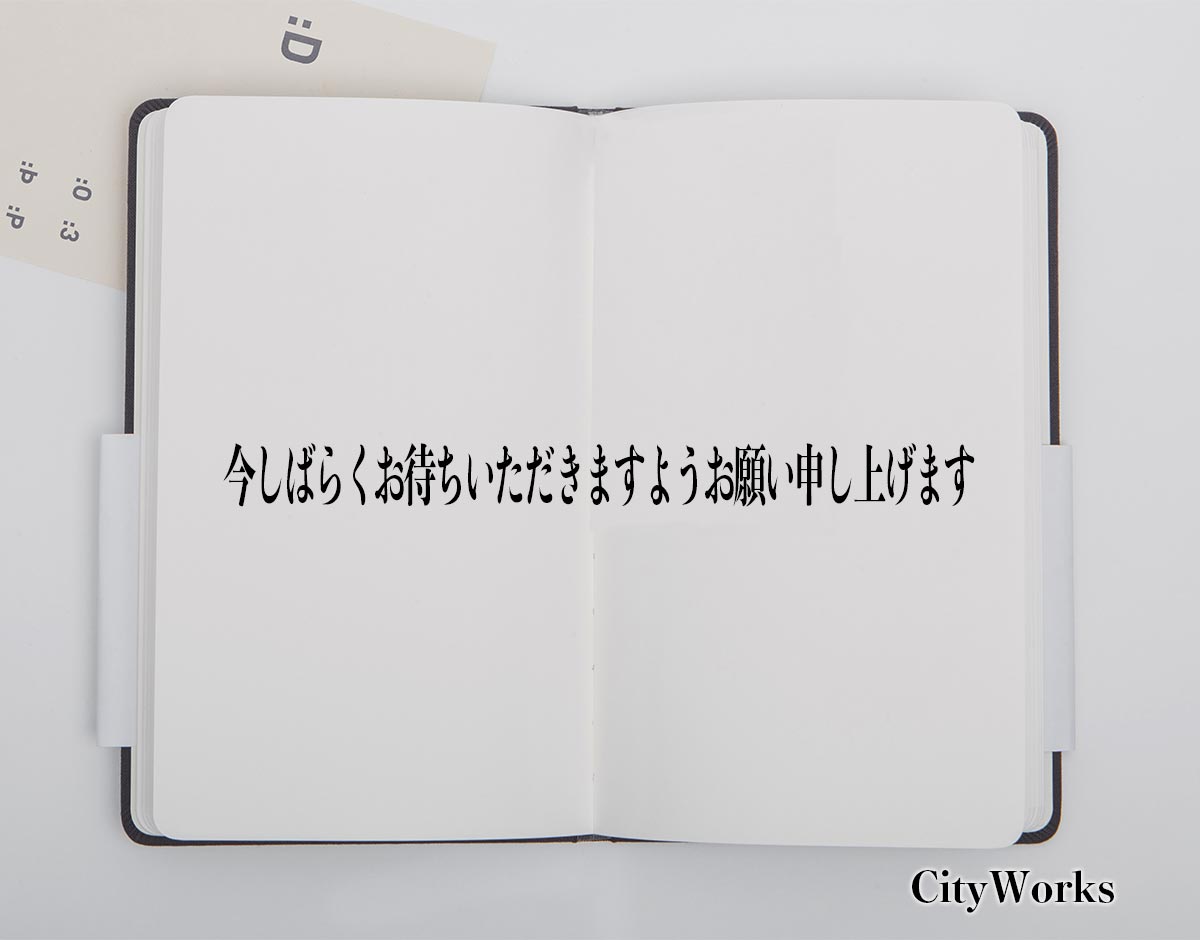 :D
:P :O
:P :3
今しばらくお待ちいただきますようお願い申し上げます
CityWorks